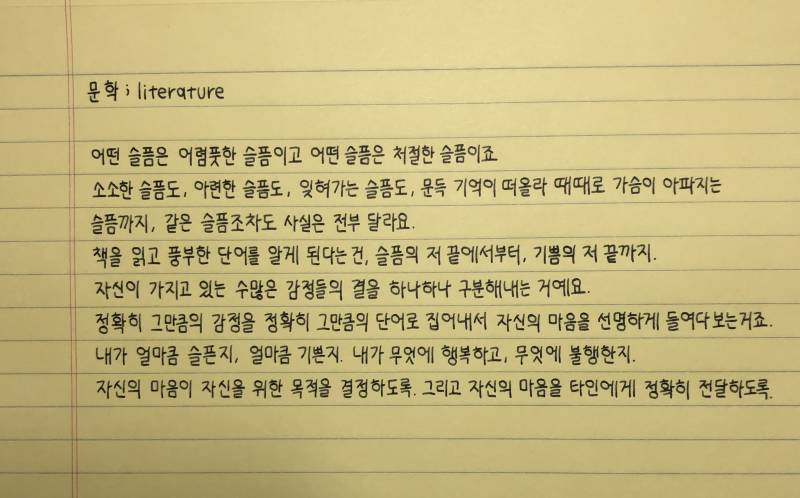 문학 ; literature
어떤 슬픔은 어렴풋한 슬픔이고 어떤 슬픔은 처절한 슬픔이죠
소소한 슬픔도, 아련한 슬픔도, 잊혀가는 슬픔도, 문득 기억이 떠올라 때때로 가슴이 아파지는
슬픔까지, 같은 슬픔조차도 사실은 전부 달라요.
책을 읽고 풍부한 단어를 알게 된다는 건, 슬픔의 저 끝에서부터, 기쁨의 저 끝까지.
자신이 가지고 있는 수많은 감정들의 결을 하나하나 구분해내는 거예요.
정확히 그만큼의 감정을 정확히 그만큼의 단어로 집어내서 자신의 마음을 선명하게 들여다보는거죠.
내가 얼마큼 슬픈지, 얼마큼 기쁜지. 내가 무엇에 행복하고, 무엇에 불행한지.
자신의 마음이 자신을 위한 목적을 결정하도록. 그리고 자신의 마음을 타인에게 정확히 전달하도록.